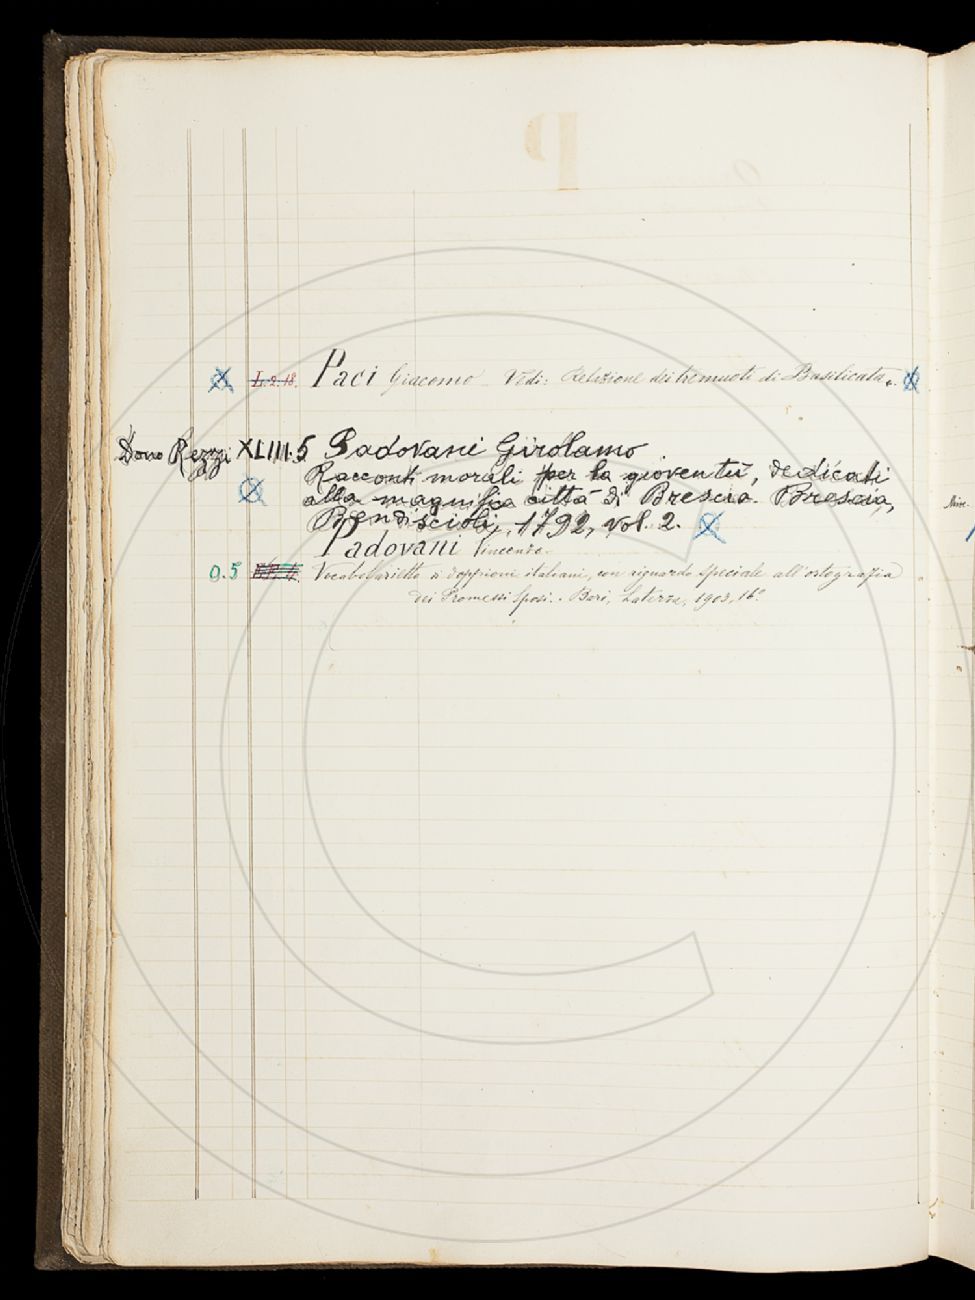 P
I. 9. 18. Paci Giacomo Vedi: Relazione dei tremuoti di Basilicata.
Dono Rezzi XLIII.5 Padovani Girolamo
Racconti morali per la gioventù, dedicati
alla magnifica città di Brescia. Brescia,
Bendiscioli, 1792, vol. 2.
Padovani Vincenzo.
O. 5 Vocabolarietto di doppioni italiani, con riguardo speciale all'ortografia
dei Promessi Sposi. Bari, Laterza, 1903, 16°